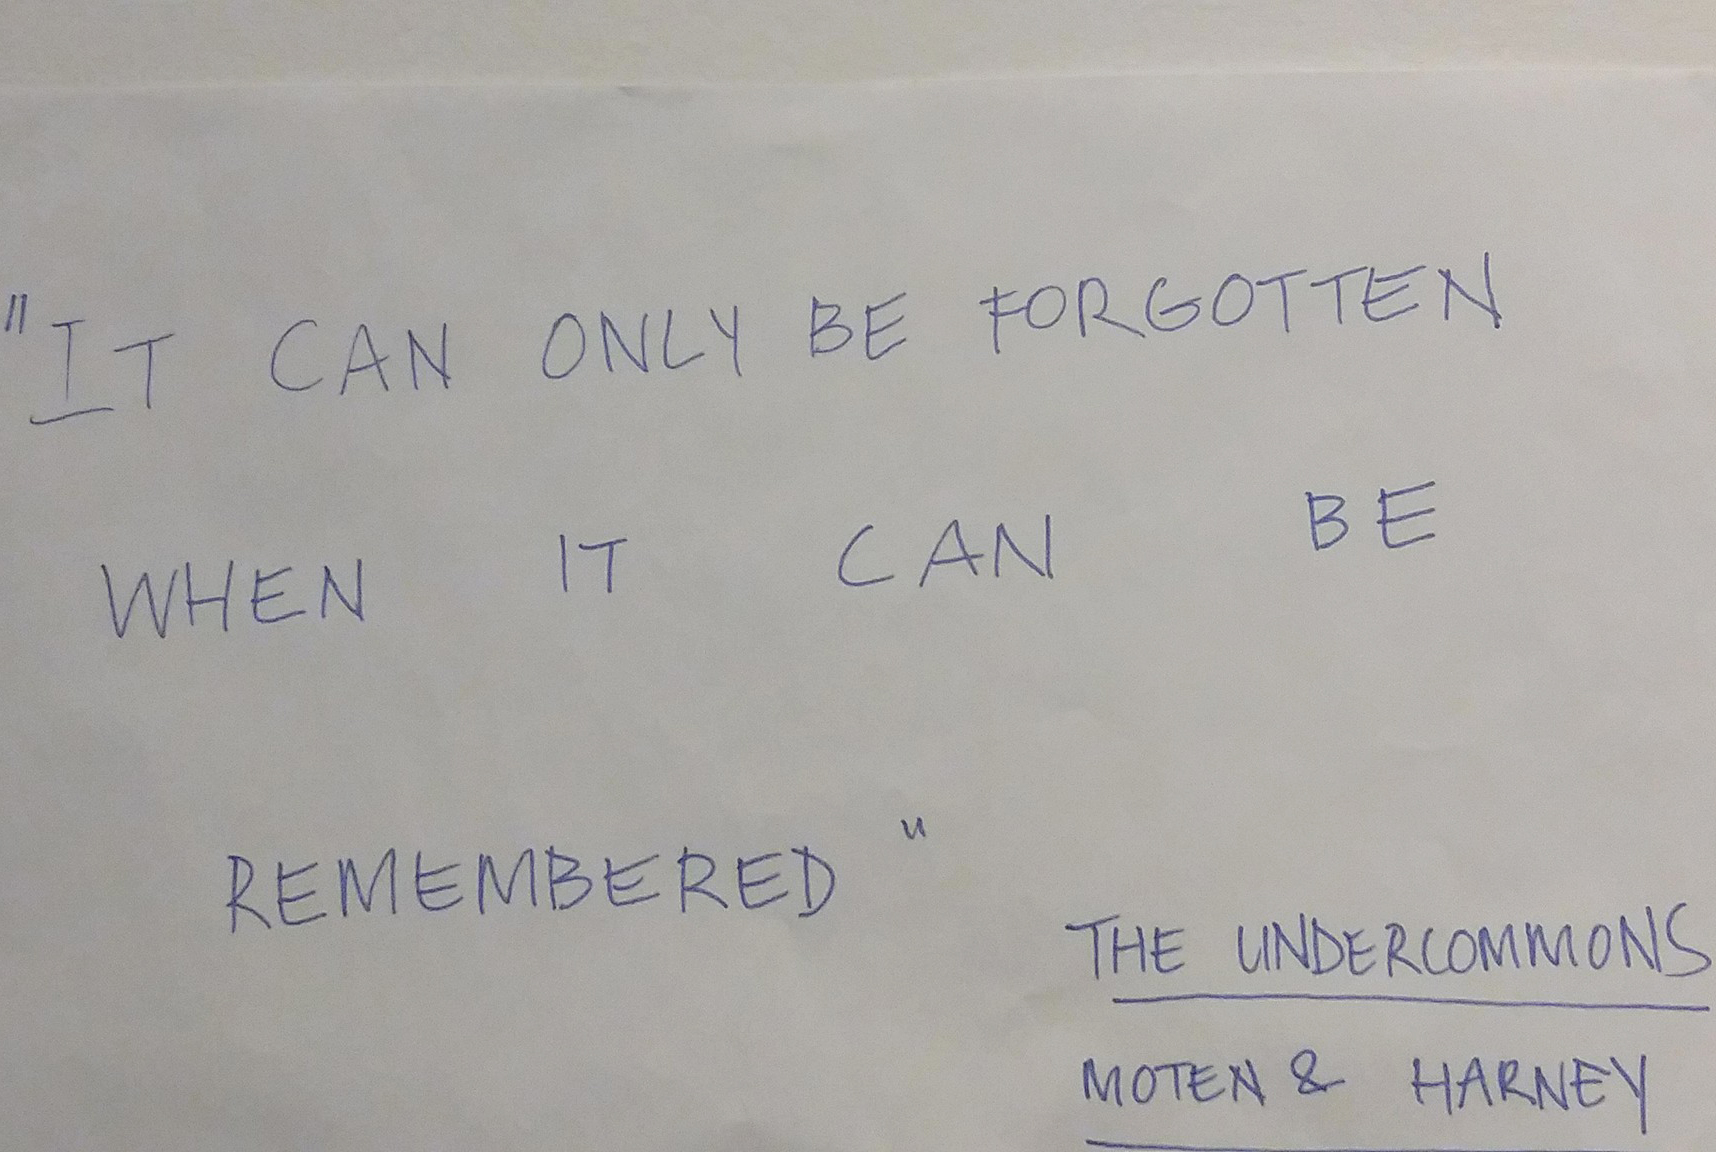 "IT CAN ONLY BE FORGOTTEN
WHEN IT CAN BE
REMEMBERED"
THE UNDERCOMMONS
MOTEN & HARNEY